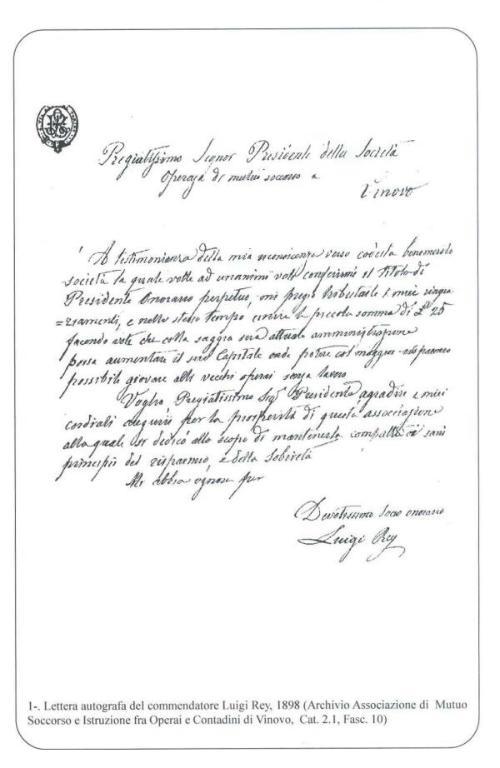 Pregiatissimo Signor Presidente della Società
Operaja di mutuo soccorso a
Vinovo
A testimonianza della mia riconoscenza verso codesta benemerita
società la quale volle ad unanimi voti conferirmi il titolo di
Presidente Onorario perpetuo, mi pregio i miei ringra
=ziamenti, e nello stesso tempo la piccola somma di 25
facendo voti che colla saggia sua attuale amministrazione
possa aumentare il suo Capitale onde potere col maggior
possibile giovare alli vecchi operai senza lavoro
Voglia Pregiatissimo Sigr Presidente, agradire i miei
cordiali per la prosperità di questa associazione
alla quale dedico allo scopo di mantenerla compatta ai sani
principii del risparmio, e della Sobrietà
Mi abbia ognora per
Devotissimo Socio onorario
Luigi Rey
1-. Lettera autografa del commendatore Luigi Rey, 1898 (Archivio Associazione di Mutuo
Soccorso e Istruzione fra Operai e Contadini di Vinovo, Cat. 2.1, Fasc. 10)